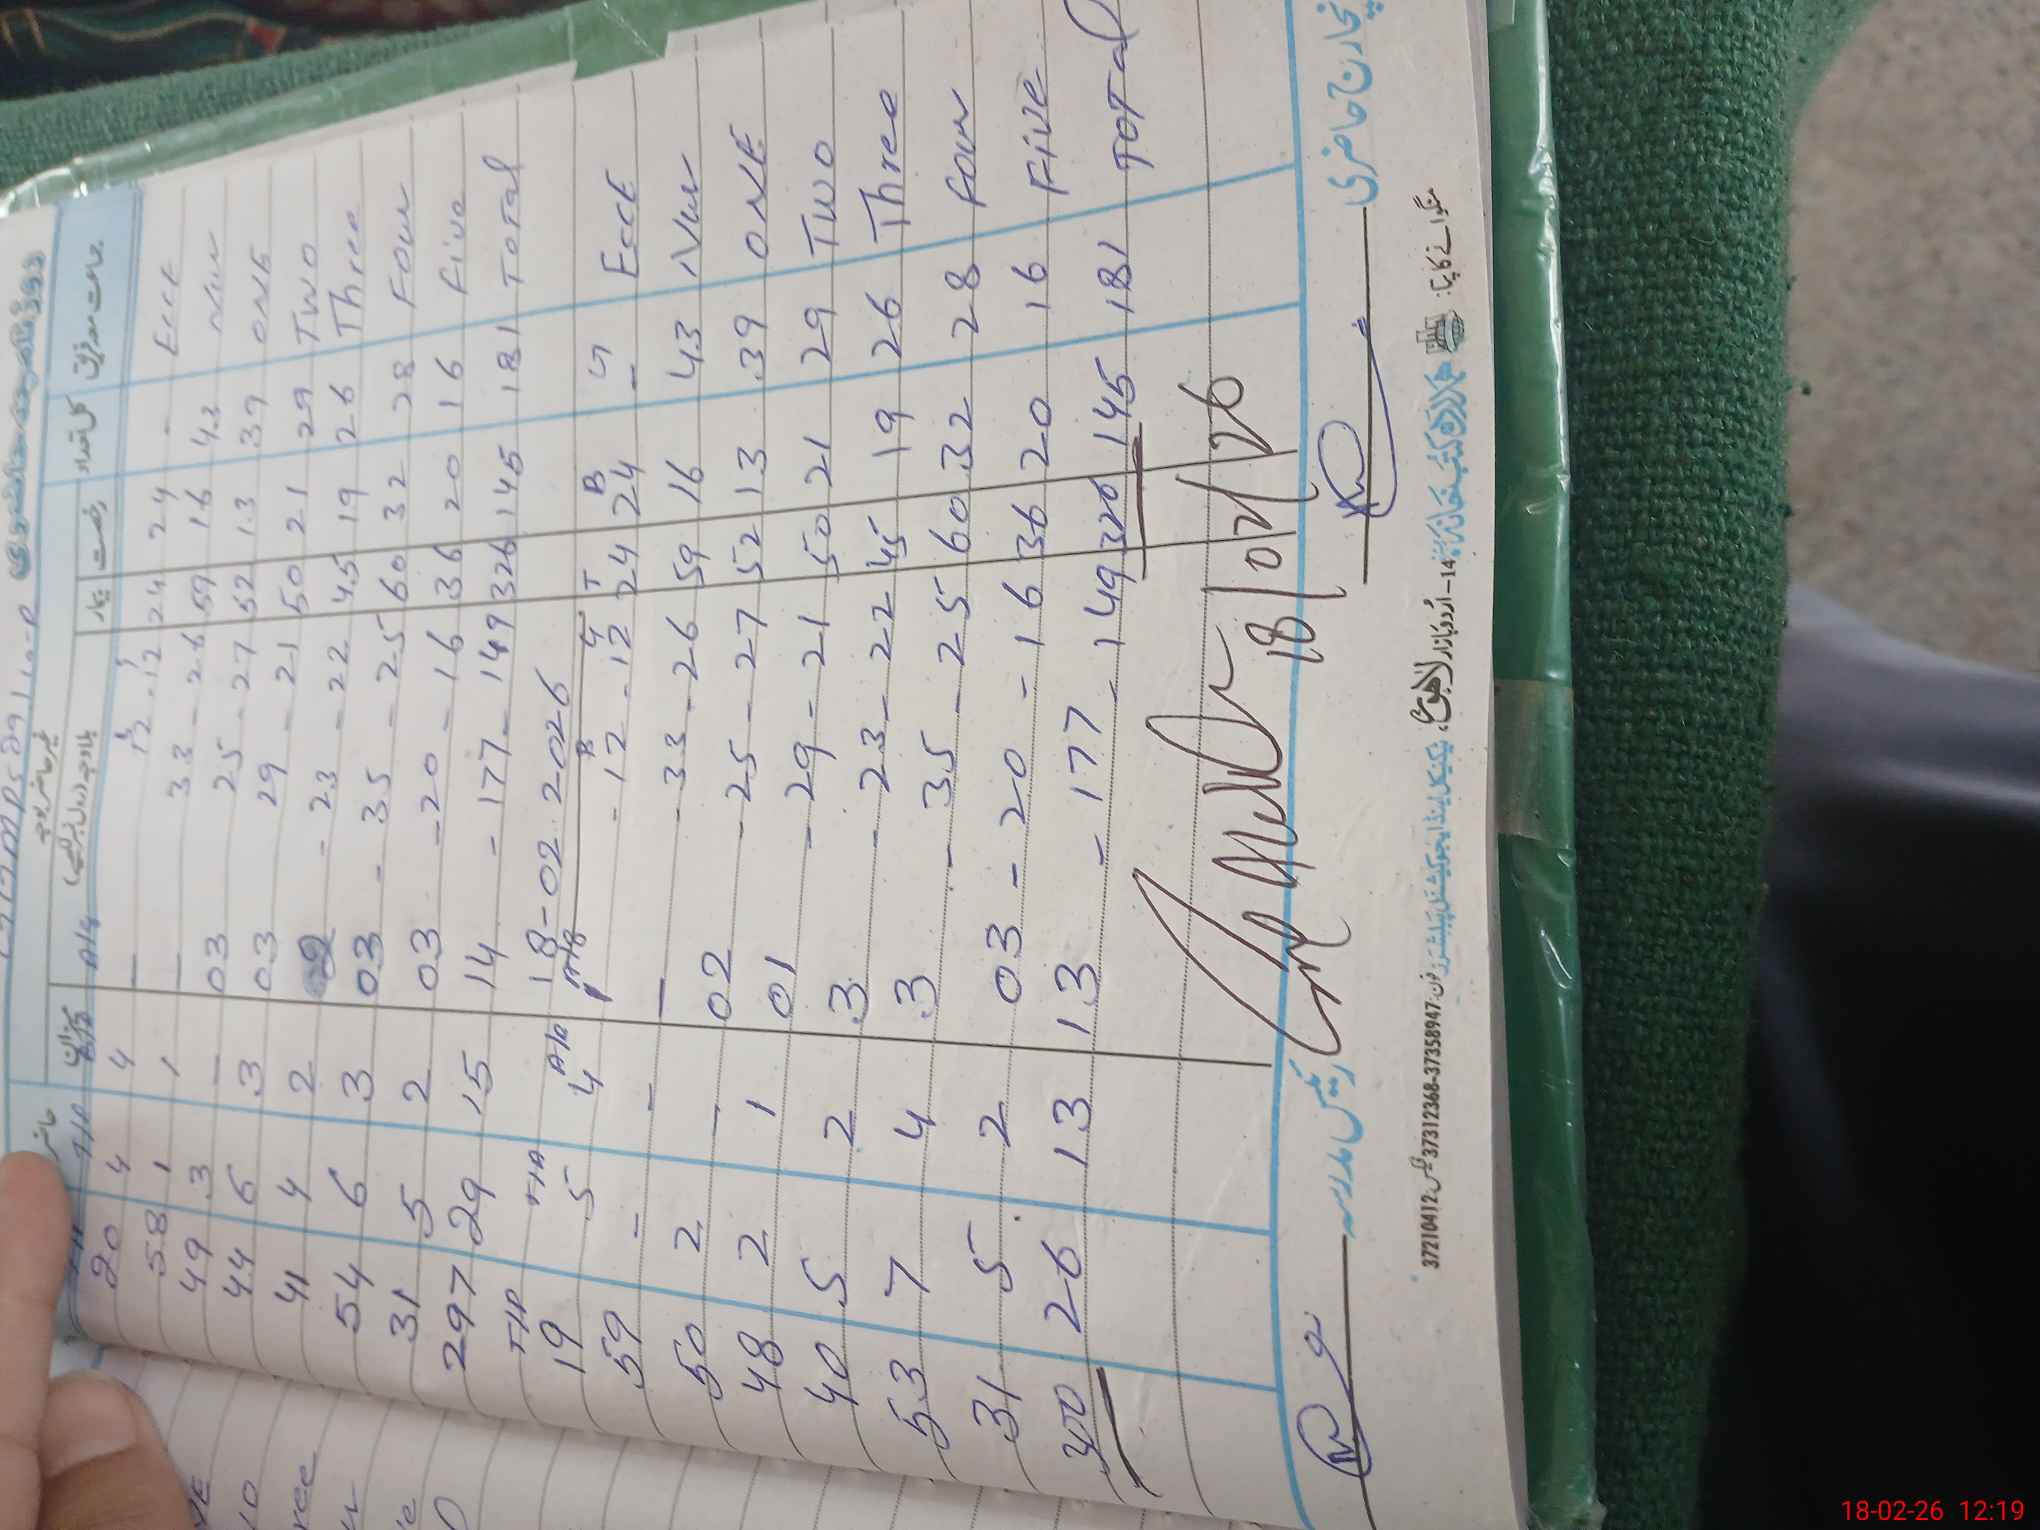 حاضر میزان غیر حاضر بوجہ بیمار رخصت کل تعداد
20 4 4 — 12 - 12 24 24 - Ecce
58 1 1 — 33 - 26 59 16 43 Nur
49 3 — 03 25 - 27 52 13 39 ONE
44 6 3 03 29 - 21 50 21 29 TWO
41 4 2 - 23 - 22 45 19 26 Three
54 6 3 03 - 35 - 25 60 32 28 Four
31 5 2 03 - 20 - 16 36 20 16 Five
297 29 15 14 - 177 - 149 326 145 181 Total
18-02-2026
T/P T/A A/G A/B B G T B G
19 5 4 1 - 12 - 12 24 24 - EccE
59 - - — - 33 - 26 59 16 43 Nur
50 2 - 02 - 25 - 27 52 13 39 ONE
48 2 1 01 - 29 - 21 50 21 29 TWO
40 5 2 3 - 23 - 22 45 19 26 Three
53 7 4 3 - 35 - 25 60 32 28 Four
31 5 2 03 - 20 - 16 36 20 16 Five
300 26 13 13 - 177 - 149 326 145 181 TOTAL
18/02/26
رئیس مدرسہ انچارج حاضری
منگوانے کا پتا: 14-اردو بازار لاہور فون: 37358947-37312368 فیکس: 37210412
18-02-26 12:19